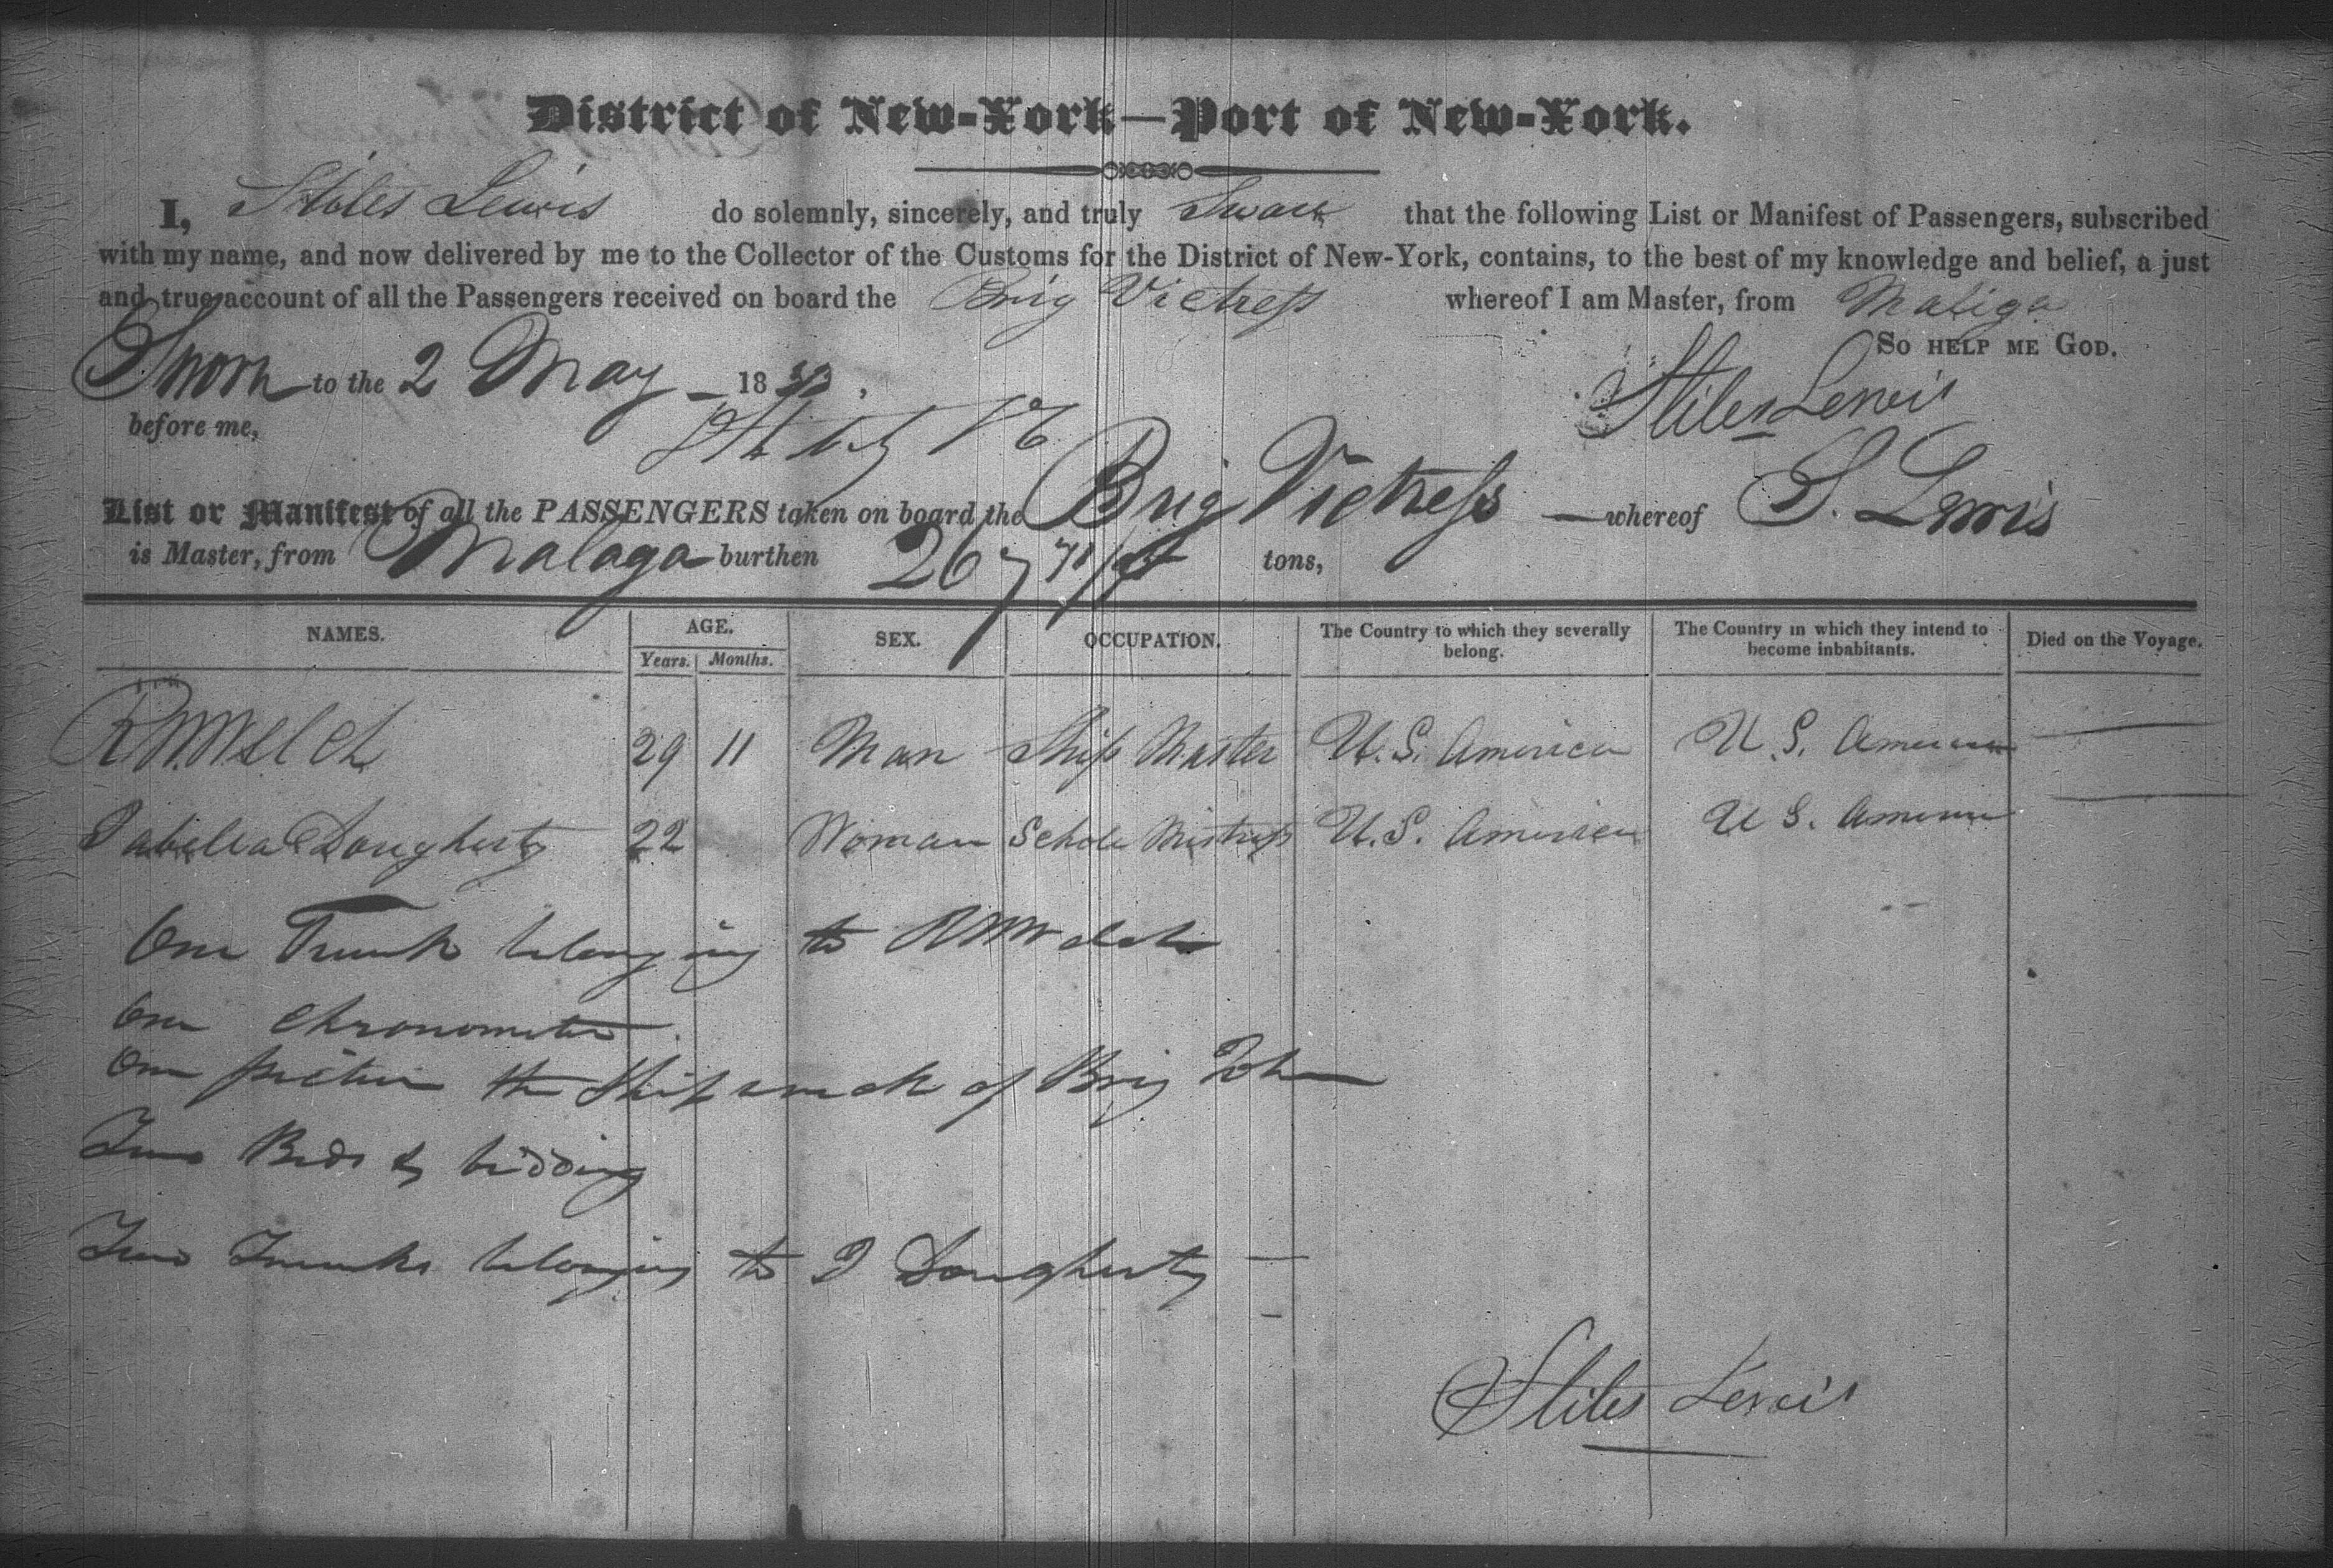 District of New-York—Port of New-York.
I, Stiles Lewis do solemnly, sincerely, and truly Swear that the following List or Manifest of Passengers, subscribed
with my name, and now delivered by me to the Collector of the Customs for the District of New-York, contains, to the best of my knowledge and belief, a just
and true account of all the Passengers received on board the Brig Victress whereof I am Master, from Maliga
So help me God.
Sworn to the 2 May 18
before me,
Stiles Lewis
List or Manifest of all the PASSENGERS taken on board the Brig Victress whereof S. Lewis
is Master, from Malaga burthen 267 tons,
NAMES. AGE. SEX. OCCUPATION. The Country to which they severally belong. The Country in which they intend to become inhabitants. Died on the Voyage.
Years. Months.
R M Welch 29 11 Man Ship Master U.S. America U.S. America
Isabella Dougherty 22 Woman Schole Mistress U.S. America U S. America
One Trunk belonging to R M Welch
One Chronometer
One picture the Shipwreck of Brig John
Two Beds & bedding
Two Trunks belonging to I Dougherty —
Stiles Lewis